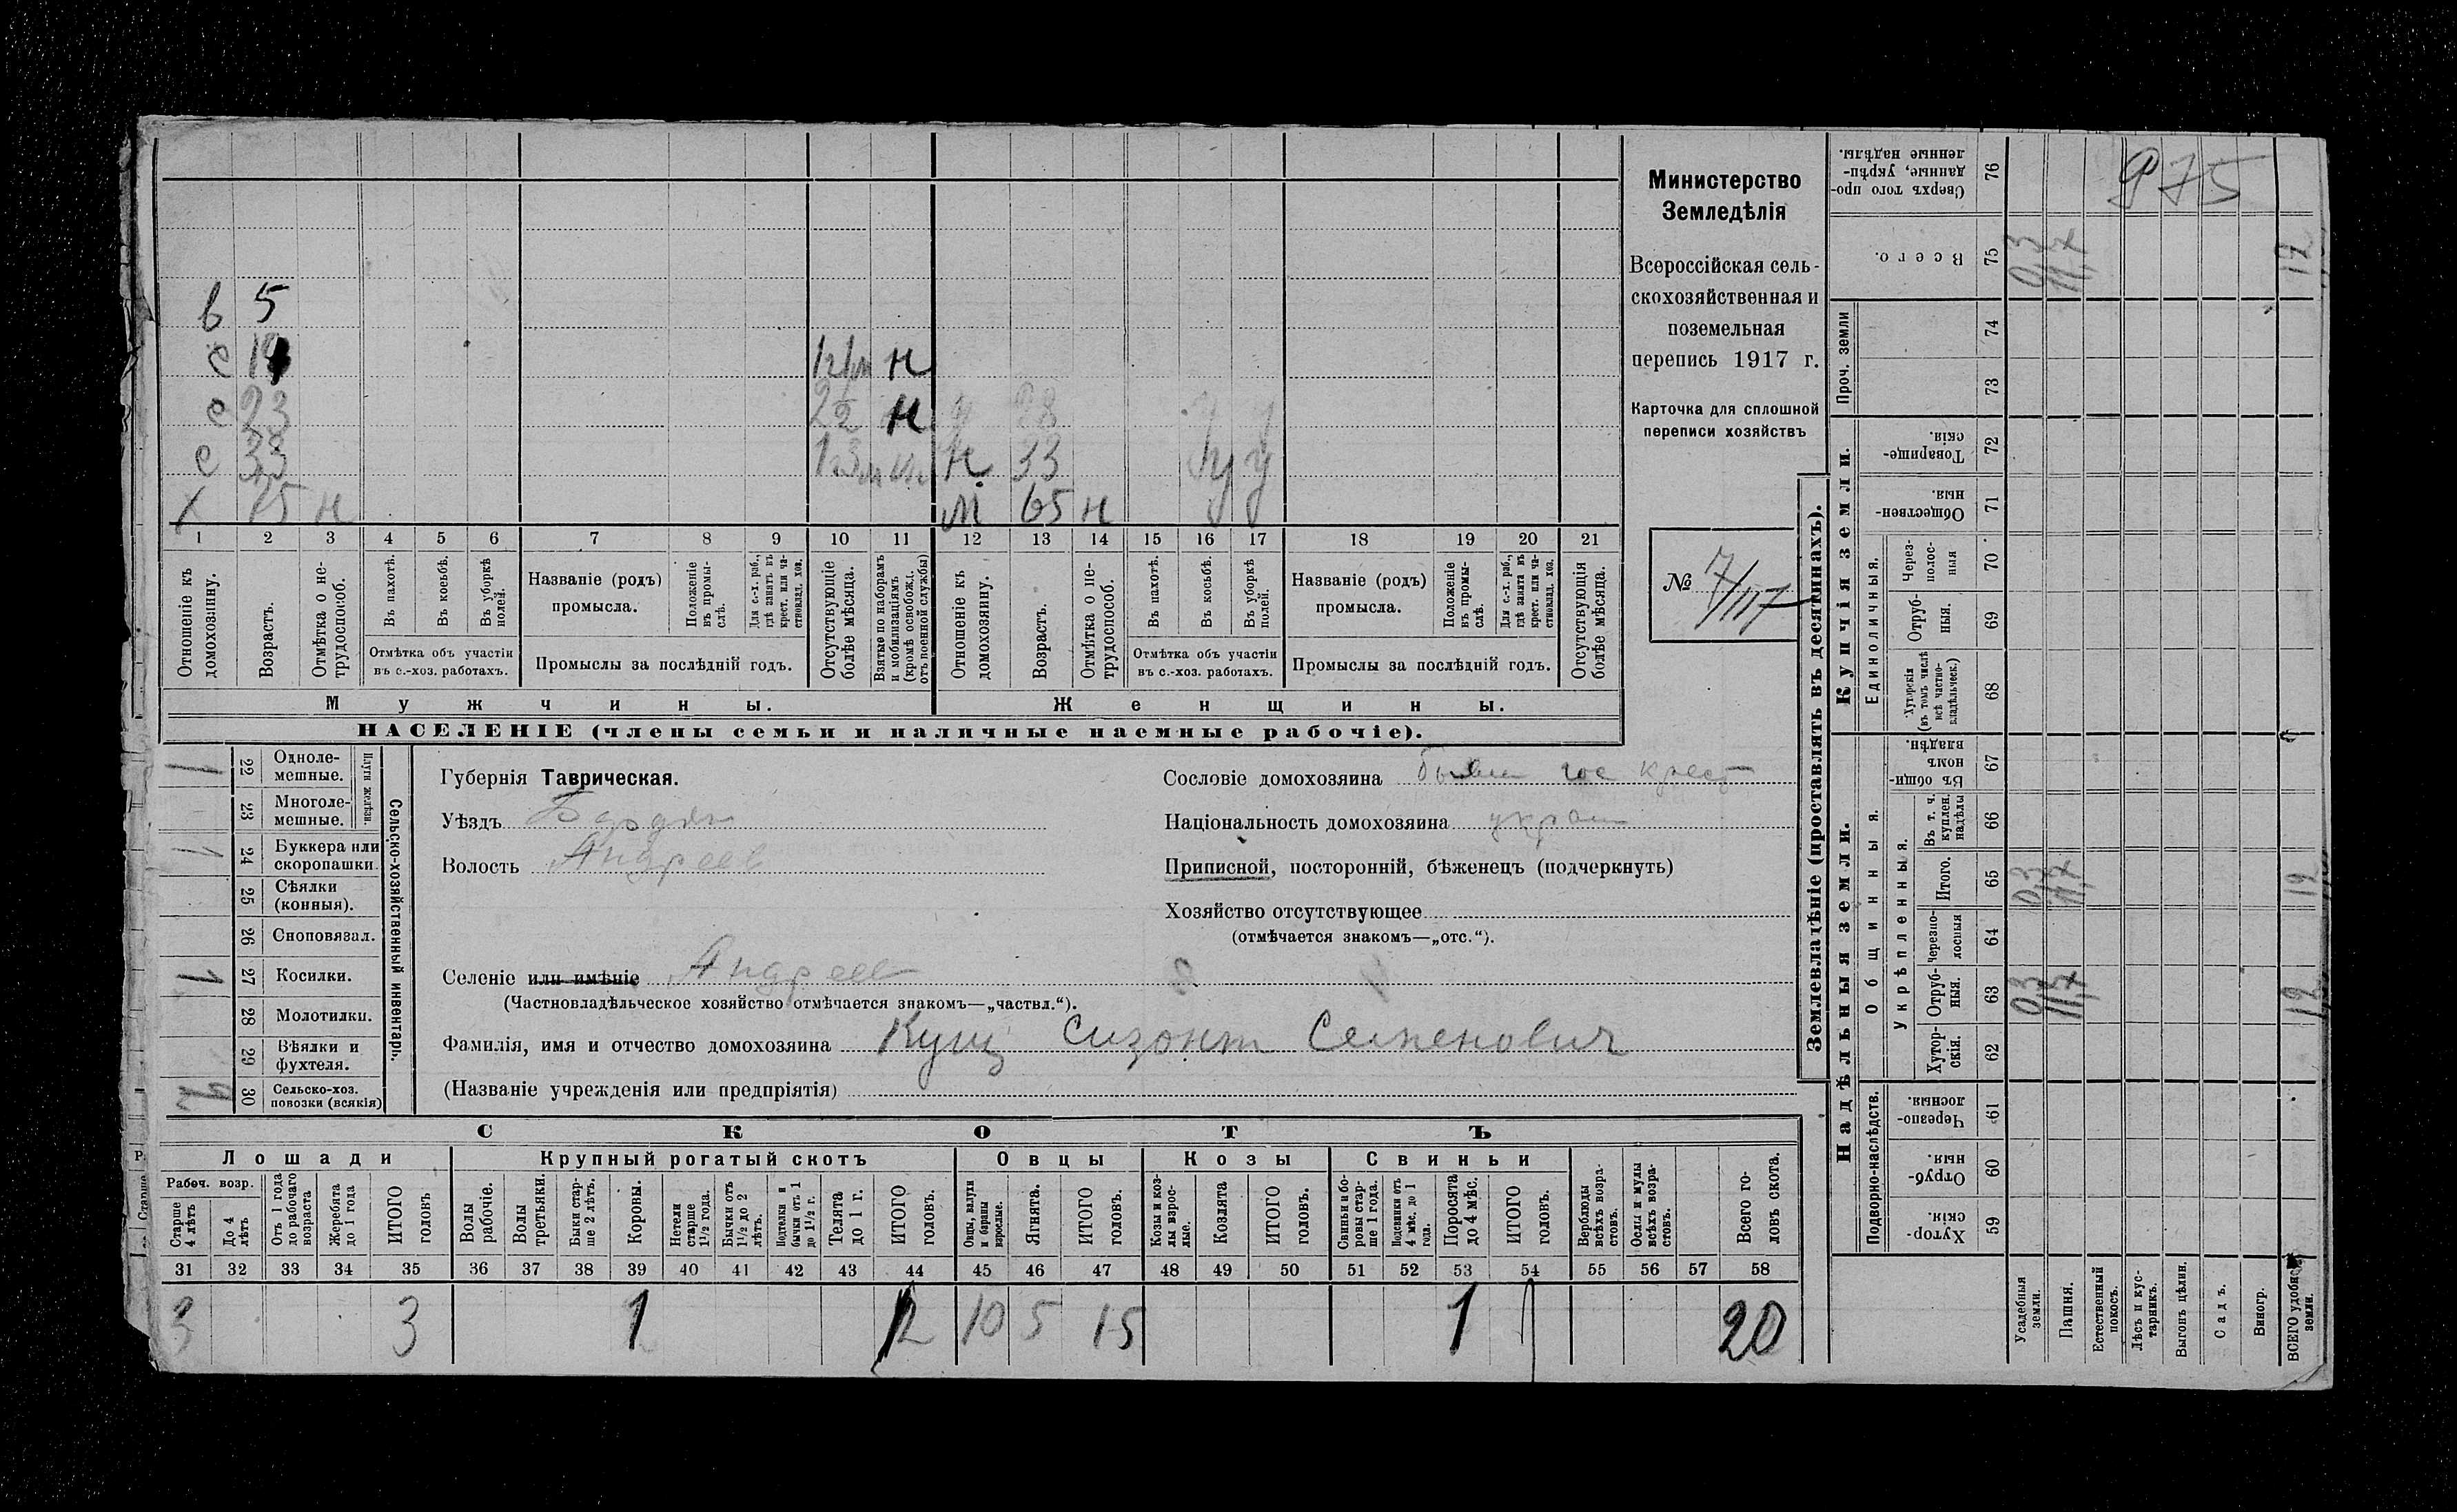 975
в 5
с 19 н
с 23 22 н 28 у у
с 33 н 33 у у
х 75 н м 65 н у у
1 2 3 4 5 6 7 8 9 10 11 12 13 14 15 16 17 18 19 20 21
Отношеніе къ домохозяину.
Возрастъ.
Отмѣтка о нетрудоспособ.
Въ пахотѣ.
Въ косьбѣ.
Въ уборкѣ полей.
Отмѣтка объ участіи
въ с.-хоз. работахъ.
Названіе (родъ)
промысла.
Положеніе въ промыслѣ.
Для с.-х. раб., гдѣ занятъ въ крест. или частновлад. хоз.
Промыслы за послѣдній годъ.
Отсутствующіе болѣе мѣсяца.
Взятые по наборамъ и мобилизаціямъ (кромѣ освобожд. отъ военной службы)
Отношеніе къ домохозяину.
Возрастъ.
Отмѣтка о нетрудоспособ.
Въ пахотѣ.
Въ косьбѣ.
Въ уборкѣ полей.
Отмѣтка объ участіи
въ с.-хоз. работахъ.
Названіе (родъ)
промысла.
Положеніе въ промыслѣ.
Для с.-х. раб., гдѣ занята въ крест. или частновлад. хоз.
Промыслы за послѣдній годъ.
Отсутствующія болѣе мѣсяца.
Мужчины.
Женщины.
НАСЕЛЕНІЕ (члены семьи и наличные наемные рабочіе).
Министерство
Земледѣлія
Всероссійская сель-
скохозяйственная и
поземельная
перепись 1917 г.
Карточка для сплошной
переписи хозяйствъ
№ 7/III7
Сельско-хозяйственный инвентарь.
Плуги желѣзн.
1 22 Одноле-
мешные.
23 Многоле-
мешные.
1 24 Буккера или
скоропашки.
25 Сѣялки
(конныя).
26 Сноповязал.
1 27 Косилки.
28 Молотилки.
29 Вѣялки и
фухтеля.
30 Сельско-хоз.
повозки (всякія)
Губернія Таврическая.
Уѣздъ Бердян
Волость Андреев
Селеніе или имѣніе Андреев
(Частновладѣльческое хозяйство отмѣчается знакомъ—„частвл.“).
Фамилія, имя и отчество домохозяина Кущ Сизонт Семенович
(Названіе учрежденія или предпріятія)
Сословіе домохозяина бывш гос крест
Національность домохозяина украин
Приписной, посторонній, бѣженецъ (подчеркнуть)
Хозяйство отсутствующее
(отмѣчается знакомъ—„отс.“).
СКОТЪ
Лошади
Крупный рогатый скотъ
Овцы
Козы
Свиньи
Рабоч. возр.
Старше 4 лѣтъ
До 4 лѣтъ
Отъ 1 года до рабочаго возраста
Жеребята до 1 года
ИТОГО головъ
Волы рабочіе.
Волы третьяки.
Быки старше 2 лѣтъ.
Коровы.
Нетели старше 1½ года.
Бычки отъ 1½ до 2 лѣтъ.
Подтелки и бычки отъ 1 до 1½ г.
Телята до 1 г.
ИТОГО головъ.
Овцы, валухи и бараны взрослые.
Ягнята.
ИТОГО головъ.
Козы и козлы взрослые.
Козлята
ИТОГО головъ.
Свиньи и боровы старше 1 года.
Подсвинки отъ 4 мѣс. до 1 года.
Поросята до 4 мѣс.
ИТОГО головъ.
Верблюды всѣхъ возрастовъ.
Ослы и мулы всѣхъ возрастовъ.
Всего головъ скота.
31 32 33 34 35 36 37 38 39 40 41 42 43 44 45 46 47 48 49 50 51 52 53 54 55 56 57 58
3 3 1 10 5 15 1 1 20
Землевладѣніе (проставлять въ десятинахъ).
Надѣльныя земли.
Купчія земли.
Подворно-наслѣдств.
Общинныя.
Укрѣпленныя.
Единоличныя.
Проч. земли
Сверхъ того проданные, укрѣпленные надѣлы. 76
Всего. 75 0,3 11,7 12
74
73
Товарищескія. 72
Общественныя. 71
Черезполосныя 70
Отрубныя. 69
Хуторскія (въ томъ числѣ всѣ частновладѣльческ.) 68
Въ общинномъ владѣн. 67
Въ т. ч. куплен. надѣлы 66
Итого. 65 0,3 11,7 12
Черезполосныя 64
Отрубныя. 63 0,3 11,7 12
Хуторскія. 62
Черезполосныя. 61
Отрубныя. 60
Хуторскія. 59
Усадебныя земли.
Пашня.
Естественный покосъ.
Лѣсъ и кустарникъ.
Выгонъ цѣлин.
Садъ.
Виногр.
ВСЕГО удобной земли.